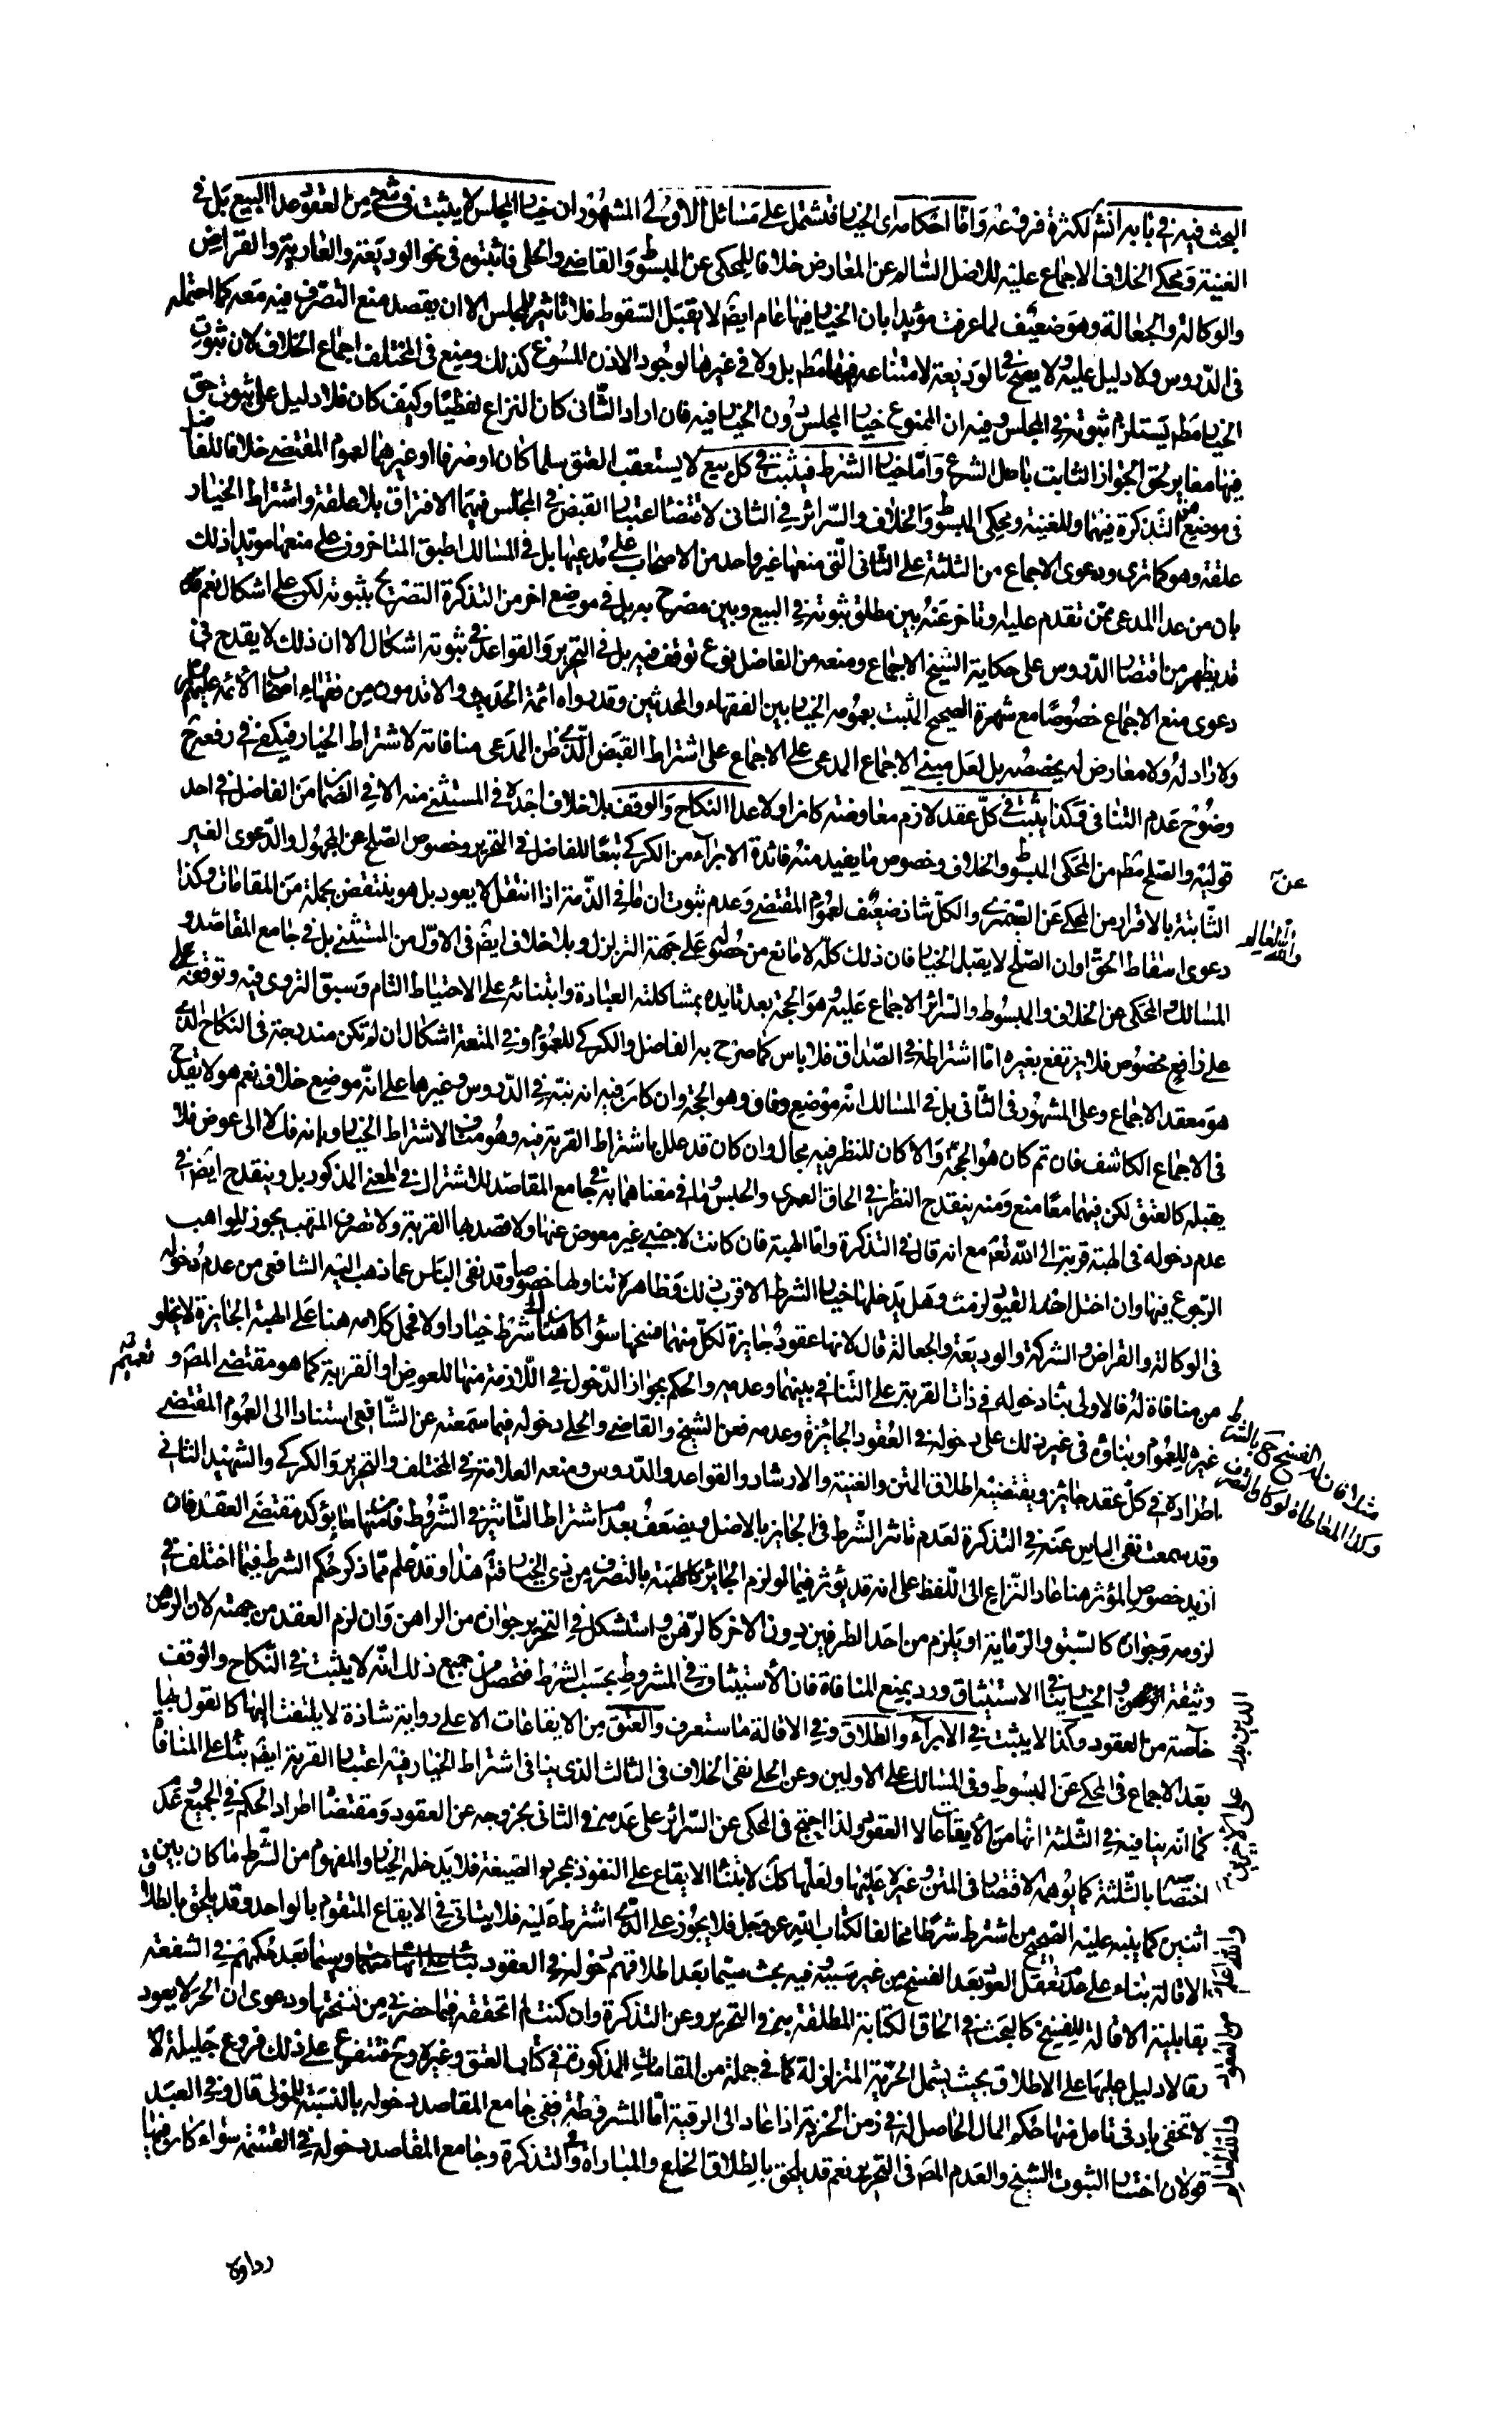 البحث فيه في بابه انش لكثرة فروعه واما احكامه اى الخيار فتشتمل على مسائل الاولى المشهور ان خيار المجلس لا يثبت في شئ من العقود عدا البيع بل في
الغنية ومحكي الخلاف الاجماع عليه للاصل السالم عن المعارض خلافا للمحكي عن المبسوط والقاضي والحلي فاثبتوه في نحو الوديعة والعارية والقراض
والوكالة والجعالة وهو ضعيف لما عرفت مؤيدا بان الخيار فيها عام ايضا لا يقبل السقوط فلا تاثير للمجلس الا ان يقصد منع التصرف فيه معه كما احتمله
في الدروس ولا دليل عليه ولا يصح في الوديعة لامتناعه فيها مطم بل ولا في غيرها لوجود الاذن المسوغ كذلك ومنع في المختلف اجماع الخلاف لان ثبوت
الخيار مطم يستلزم ثبوته في المجلس وفيه ان الممنوع خيار المجلس دون الخيار فيه فان اراد الثاني كان النزاع لفظيا وكيف كان فلا دليل على ثبوت حق
فيها مغاير لحق الجواز الثابت باصل الشرع واما خيار الشرط فيثبت في كل بيع لا يستعقب العتق سلما كان او صرفا او غيرهما لعموم المقتضي خلافا للفاضل
في موضع من التذكرة فيهما وللغنية ومحكي المبسوط والخلاف والسرائر في الثاني لاقتضاء اعتبار القبض في المجلس فيهما الافتراق بلا علقة واشتراط الخيار
علقة وهو كما ترى ودعوى الاجماع من الثلثة على الثاني التي منعها غير واحد من الاصحاب على مدعيها بل في المسالك اطبق المتاخرون على منعها مؤيدا ذلك
بان من عدا المدعي ممن تقدم عليه وتاخر عنه بين مطلق ثبوته في البيع وبين مصرح به بل في موضع اخر من التذكرة التصريح بثبوته لكن على اشكال نعم
قد يظهر من اقتصار الدروس على حكاية الشيخ الاجماع ومنعه من الفاضل نوع توقف فيه بل في التحرير والقواعد في ثبوته اشكال الا ان ذلك لا يقدح في
دعوى منع الاجماع خصوصا مع شهرة الصحيح المثبت بعمومه الخيار بين الفقهاء والمحدثين وقد رواه ائمة الحديث والاقدمون من فقهاء اصحاب الائمة عليهم
ولا راد له ولا معارض له يخصصه بل لعل مبنى الاجماع المدعى على الاجماع على اشتراط القبض الذي ظن المدعي منافاته لاشتراط الخيار فيكفي في رفعه ح
وضوح عدم التنافي وكذا يثبت في كل عقد لازم معاوضة كان او لا عدا النكاح والوقف بلا خلاف اجده في المستثنى منه الا في الضمان من الفاضل في احد
قوليه والصلح مطم من المحكي المبسوط والخلاف وخصوص ما يفيد منه فائدة الابراء من الكركي تبعا للفاضل في التحرير وخصوص الصلح عن المجهول والدعوى الغير
الثابتة بالاقرار من المحكي عن الصيمري والكل شاذ ضعيف لعموم المقتضي وعدم ثبوت ان ما في الذمة اذا انتقل لا يعود بل هو ينتقض بجملة من المقامات وكذا
دعوى اسقاط الحق او ان الصلح لا يقبل الخيار فان ذلك كله لا مانع من حصوله على جهة التزلزل وبلا خلاف ايضا في الاول من المستثنى بل في جامع المقاصد و
المسالك والمحكي عن الخلاف والمبسوط والسرائر الاجماع عليه وهو الحجة بعد تايده بمشاكلته العبادة وابتنائه على الاحتياط التام وسبق التروي فيه وتوقفه
على رافع مخصوص فلا يرتفع بغيره اما اشتراطه في الصداق فلا باس كما صرح به الفاضل والكركي للعموم وفي المتعة اشكال ان لم تكن مندرجة في النكاح الذي
هو معقد الاجماع وعلى المشهور في الثاني بل في المسالك انه موضع وفاق وهو الحجة وان كان فيه انه نبه في الدروس وغيرها على انه موضع خلاف نعم هو لا يقدح
في الاجماع الكاشف فان تم كان هو الحجة والا كان للنظر فيه مجال وان كان قد علل باشتراط القربة فيه وهو مناف لاشتراط الخيار وبانه فك لا الى عوض فلا
يقبله كالعتق لكن فيهما معا منع ومنه ينقدح النظر في الحاق العمرى والحبس وما في معناهما به في جامع المقاصد للاشتراك في المعنى المذكور بل وينقدح ايضا في
عدم دخوله في الهبة قربة الى الله تعم مع انه قال في التذكرة واما الهبة فان كانت لاجنبي غير معوض عنها ولا قصد بها القربة ولا تصرف المتهب يجوز للواهب
الرجوع فيها وان اختل احد القيود لزمت وهل يدخلها خيار الشرط الاقرب ذلك وظاهره تناولها خصوصا وقد نفى الباس عما ذهب اليه الشافعي من عدم دخوله
في الوكالة والقراض والشركة والوديعة والجعالة قال لانها عقود جايزة لكل منهما فسخها سواء كان هناك شرط خيار او لا فحمل كلامه هنا على الهبة الجايزة لا يخلو
من منافاة له فالاولى بناء دخوله في ذات القربة على التنافي بينهما وعدمه والحكم بجواز الدخول في اللازمة منها للعوض او القربة كما هو مقتضى المص و
غيره للعموم وبناؤه في غير ذلك على دخوله في العقود الجائزة وعدمه فعن الشيخ والقاضي والحلي دخوله فيما سمعته عن الشافعي استنادا الى العموم المقتضي
اطراده في كل عقد جايز ويقتضيه اطلاق المتن والغنية والارشاد والقواعد والدروس ومنعه العلامة في المختلف والتحرير والكركي والشهيد الثاني
وقد سمعت نفي الباس عنه في التذكرة لعدم تاثر الشرط في الجايز بالاصل ويضعف بعدم اشتراط التاثير في الشروط فان منها ما يؤكد مقتضى العقد فان
اريد خصوص المؤثر هنا عاد النزاع الى اللفظ على انه قد يؤثر فيما لو لزم الجائز كالهبة بالتصرف من ذي الخيار فتم هذا وقد علم مما ذكر حكم الشرط فيما اختلف في
لزومه وجوازه كالسبق والرماية او يلزم من احد الطرفين دون الاخر كالرهن واستشكل في التحرير جوازه من الراهن وان لزم العقد من جهته لان الرهن
وثيقة والخيار ينافي الاستيثاق ورد بمنع المنافاة فان الاستيثاق في المشروط بحسب الشرط فتحصل من جميع ذلك انه لا يثبت في النكاح والوقف
خاصة من العقود وكذا لا يثبت في الابراء والطلاق وفي الاقالة ما ستعرف والعتق من الايقاعات الا على رواية شاذة لا يلتفت اليها كالقول بها
بعد الاجماع في المحكي عن المبسوط وفي المسالك على الاولين وعن الحلي نفي الخلاف في الثالث الذي ينافي اشتراط الخيار فيه اعتبار القربة ايضا بناء على المنافاة
كما انه ينافيه في الثلثة انها من الايقاعات لا العقود ولذا احتج في المحكي عن السرائر على عدمه في الثاني بخروجه عن العقود ومقتضاه اطراد الحكم في الجميع وعدم
اختصاصه بالثلثة كما يوهمه الاقتصار في المتن وغيره عليها ولعلها كك لابتناء الايقاع على النفوذ بمجرد الصيغة فلا يدخله الخيار والمفهوم من الشرط ما كان بين
اثنين كما ينبه عليه الصحيح من اشترط شرطا مخالفا لكتاب الله عز وجل فلا يجوز على الذي اشترط عليه فلا يتاتى في الايقاع المتقوم بالواحد وقد يلحق بالطلاق
الاقالة بناء على عدم تعقل العود بعد الفسخ من غير سببه وفيه بحث سيما بعد اطلاقهم دخوله في العقود وسيما بعد حكمهم في الشفعة
بقابلية الاقالة للفسخ كالبحث في الحاق الكتابة المطلقة به في التحرير وعن التذكرة وان كنت لم اتحققه فيما حضرني من نسختها ودعوى ان الحر لا يعود
رقا لا دليل عليها على الاطلاق بحيث يشمل الحرية المتزلزلة كما في جملة من المقامات المذكورة في كتاب العتق وغيره وح فتتفرع على ذلك فروع جليلة لا
لا تخفى بادنى تامل منها حكم المال الحاصل له في زمن الحرية اذا عاد الى الرقية اما المشروطة ففي جامع المقاصد دخوله بالنسبة للمولى قال وفي العبد
قولان اختار الثبوت الشيخ والعدم المص في التحرير نعم قد يلحق بالطلاق الخلع والمباراة وفي التذكرة وجامع المقاصد دخوله في القسمة سواء كان فيها
عن
والله العالم
مثلا فان له الفسخ ح بالشرط
وكذا المعاطاة لو كان التصرف
والله العالم
رداوه